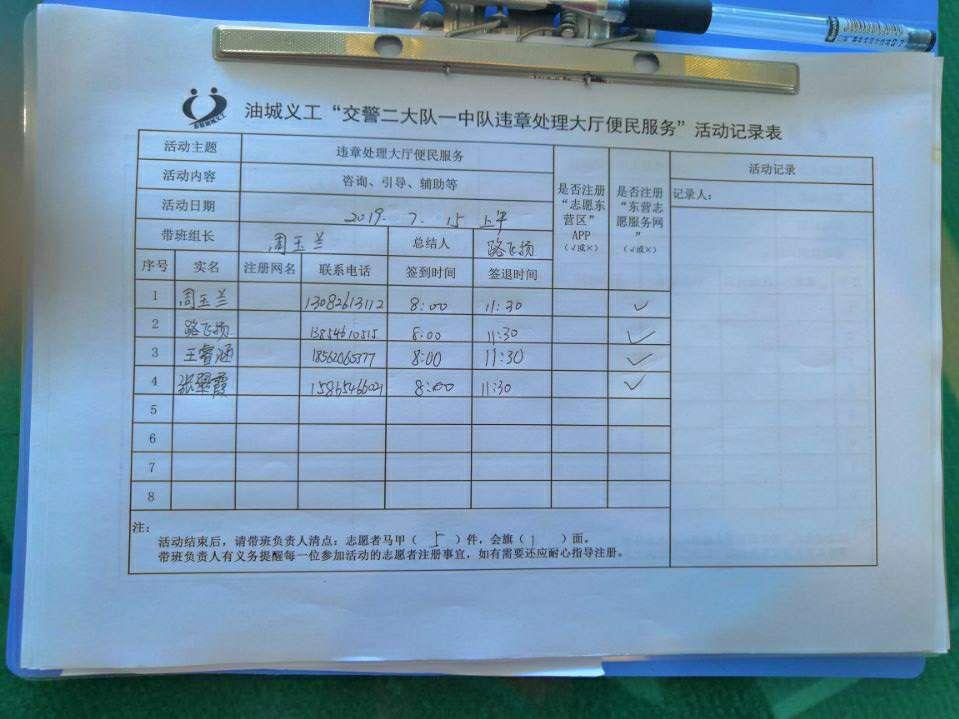 油城义工“交警二大队一中队违章处理大厅便民服务”活动记录表
活动主题 违章处理大厅便民服务
活动内容 咨询、引导、辅助等
活动日期 2019. 7. 15 上午
带班组长 周玉兰 总结人 路飞扬
是否注册“志愿东营区”APP（√或×）
是否注册“东营志愿服务网”（√或×）
活动记录
记录人：
序号 实名 注册网名 联系电话 签到时间 签退时间
1 周玉兰 13082613112 8:00 11:30 ✓
2 路飞扬 13854610515 8:00 11:30 ✓
3 王睿涵 8:00 11:30 ✓
4 张翠霞 8:00 11:30 ✓
5
6
7
8
注：
活动结束后，请带班负责人清点：志愿者马甲（ 5 ）件，会旗（ 1 ）面。
带班负责人有义务提醒每一位参加活动的志愿者注册事宜，如有需要还应耐心指导注册。